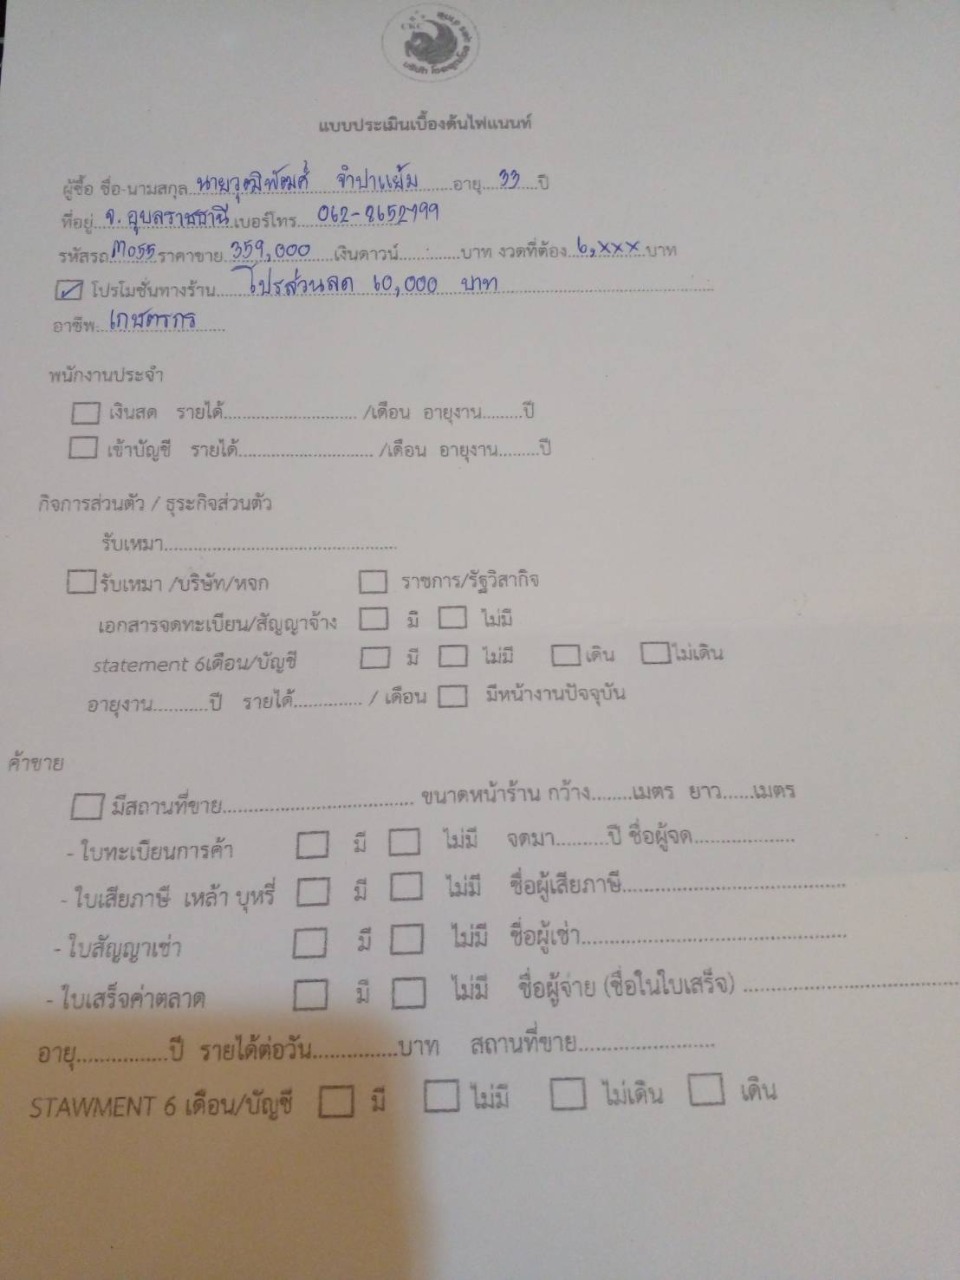 แบบประเมินเบื้องต้นไฟแนนท์
ผู้ซื้อ ชื่อ-นามสกุล นายวุฒิพัฒศ์ จำปาแย้ม อายุ 33 ปี
ที่อยู่ จ. อุบลราชธานี เบอร์โทร 062-8652799
รหัสรถ M055 ราคาขาย 359,000 เงินดาวน์ บาท งวดที่ต้อง 6,xxx บาท
โปรโมชั่นทางร้าน โปรส่วนลด 10,000 บาท
อาชีพ เกษตรกร
พนักงานประจำ
เงินสด รายได้ /เดือน อายุงาน ปี
เข้าบัญชี รายได้ /เดือน อายุงาน ปี
กิจการส่วนตัว / ธุระกิจส่วนตัว
รับเหมา
รับเหมา /บริษัท/หจก ราชการ/รัฐวิสากิจ
เอกสารจดทะเบียน/สัญญาจ้าง มี ไม่มี
statement 6เดือน/บัญชี มี ไม่มี เดิน ไม่เดิน
อายุงาน ปี รายได้ / เดือน มีหน้างานปัจจุบัน
ค้าขาย
มีสถานที่ขาย ขนาดหน้าร้าน กว้าง เมตร ยาว เมตร
- ใบทะเบียนการค้า มี ไม่มี จดมา ปี ชื่อผู้จด
- ใบเสียภาษี เหล้า บุหรี่ มี ไม่มี ชื่อผู้เสียภาษี
- ใบสัญญาเช่า มี ไม่มี ชื่อผู้เช่า
- ใบเสร็จค่าตลาด มี ไม่มี ชื่อผู้จ่าย (ชื่อในใบเสร็จ)
อายุ ปี รายได้ต่อวัน บาท สถานที่ขาย
STAWMENT 6 เดือน/บัญชี มี ไม่มี ไม่เดิน เดิน